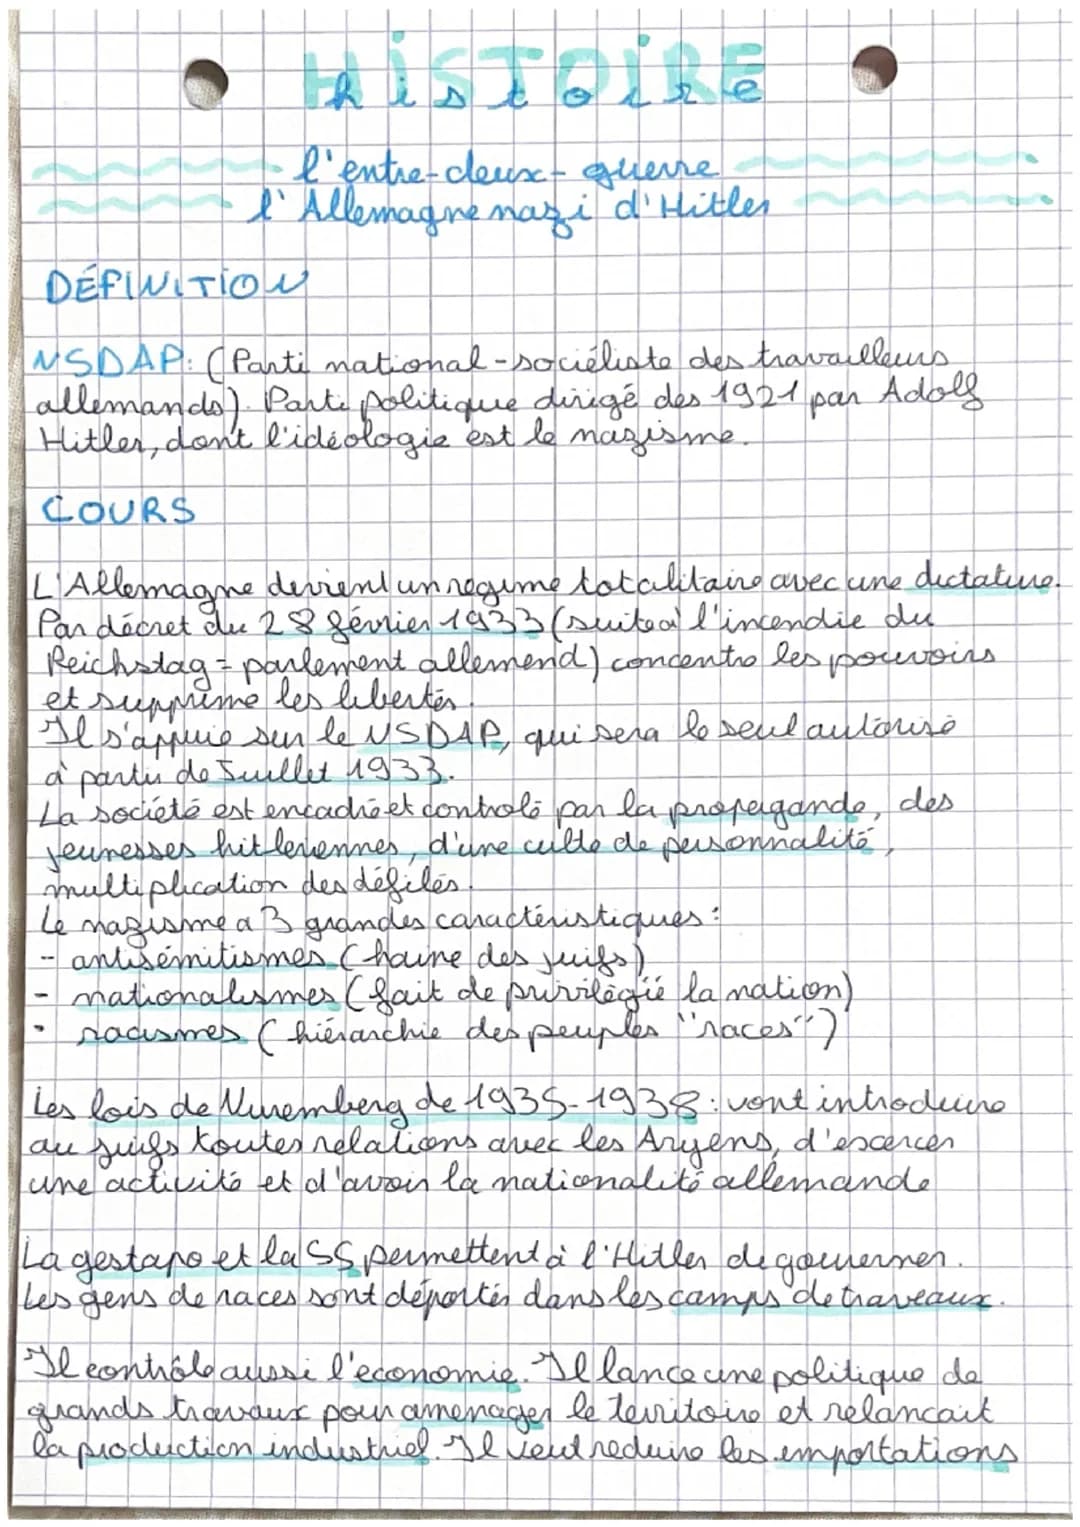 HISTOIRE
histoire
l'entre-deux-guerre
l'Allemagne nazi d'Hitler
DÉFINITION
NSDAP: (Parti national-sociéliste des travailleurs
allemands). Parti politique dirigé des 1921 par Adolf
Hitler, dont l'idéologie est le nazisme.
COURS
L'Allemagne devient un regime totalitaire avec une dictature.
Par décret du 28 février 1933 (suite à l'incendie du
Reichstag = parlement allemend) concentre les pouvoirs
et supprime les libertés.
Il s'appuie sur le NSDAP, qui sera le seul autorisé
à partir de Juillet 1933.
La société est encadré et controlé par la propagande, des
jeunesses hitleriennes, d'une culte de personnalité,
multiplication des défilés.
Le nazisme a 3 grandes caractéristiques:
- antisémitismes (haine des juifs)
- nationalismes (fait de privilégié la nation)
- racismes (hiérarchie des peuples "races")
Les lois de Nuremberg de 1935-1938: vont introduire
au juifs toutes relations avec les Aryens, d'exercer
une activité et d'avoir la nationalité allemande
La gestapo et la SS permettent à l'Hitler de gouverner.
Les gens de races sont déportés dans les camps de traveaux.
Il contrôle aussi l'economie. Il lance une politique de
grands travaux pour amenager le territoire et relancait
la production industriel. Il veut reduire les importations